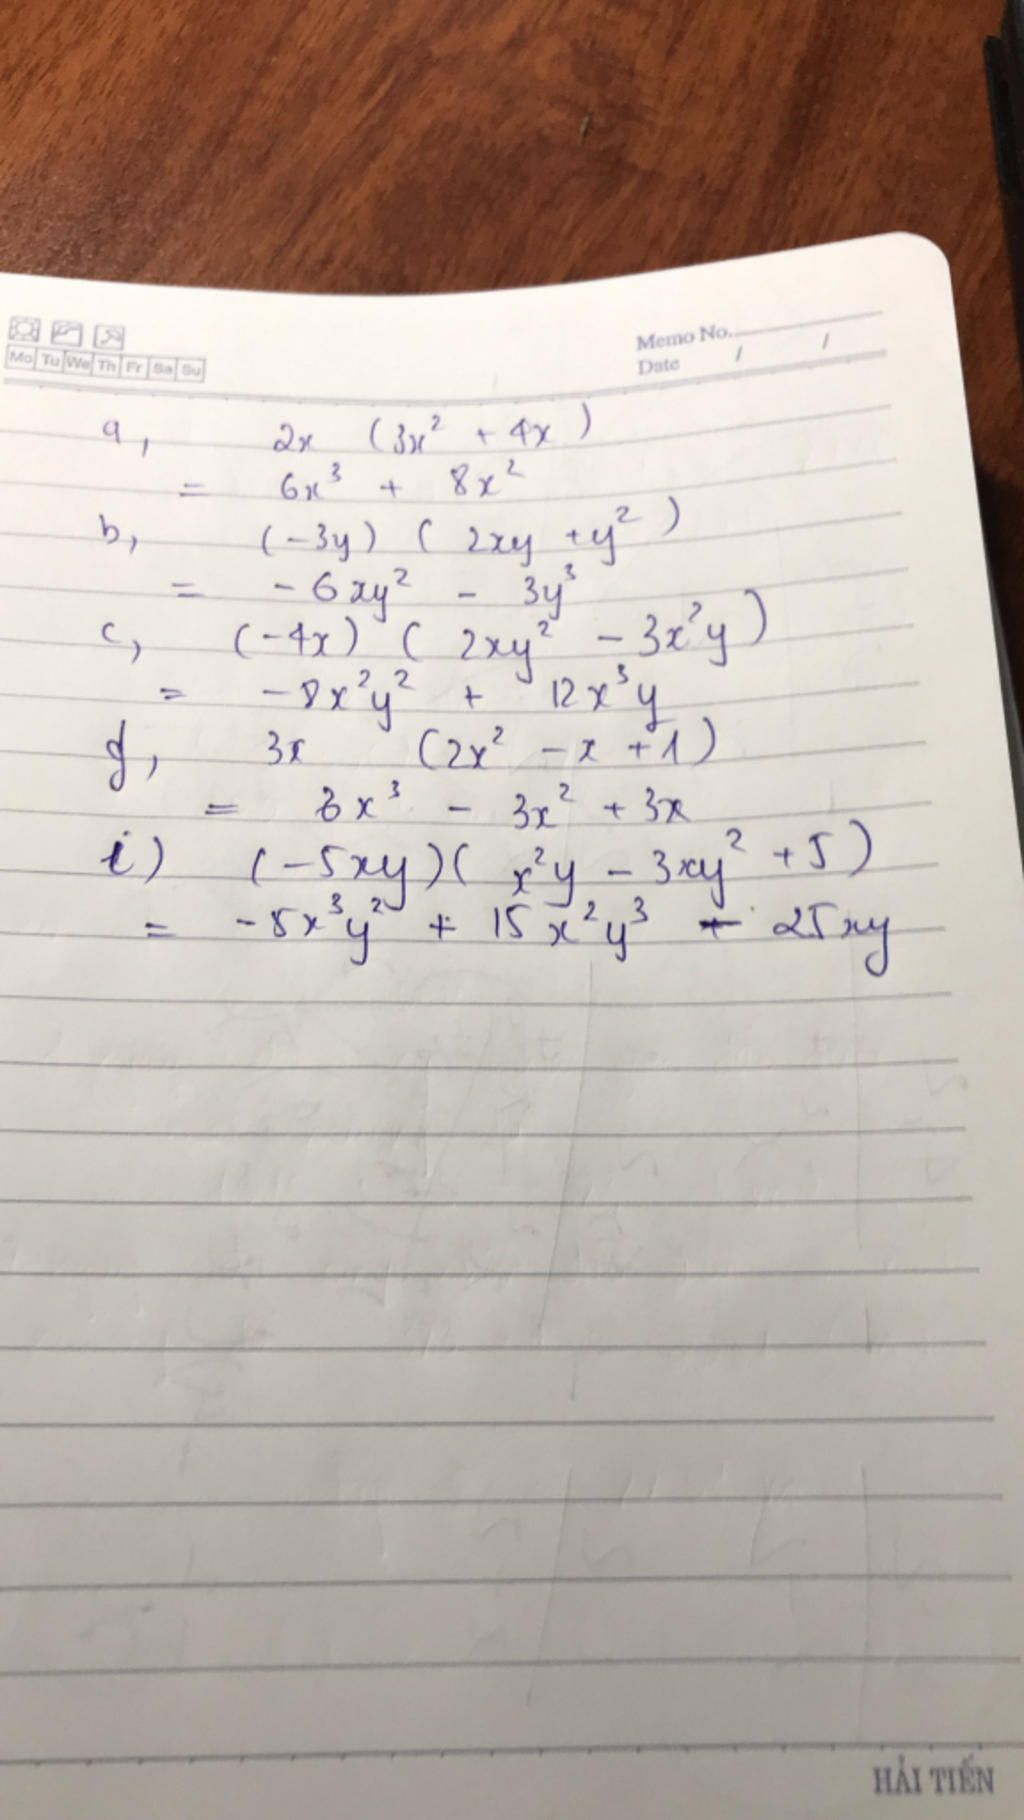 Mo Tu We Th Fr Sa Su
Memo No.
Date / /
a, 2x (3x² + 4x)
= 6x³ + 8x²
b, (-3y) ( 2xy + y² )
= - 6xy² - 3y³
c, (-4x) ( 2xy² - 3x²y )
= -8x²y² + 12x³y
d, 3x (2x² - x + 1)
= 6x³ - 3x² + 3x
i) (-5xy)( x²y - 3xy² + 5 )
= -5x³y² + 15x²y³ - 25xy
HẢI TIẾN